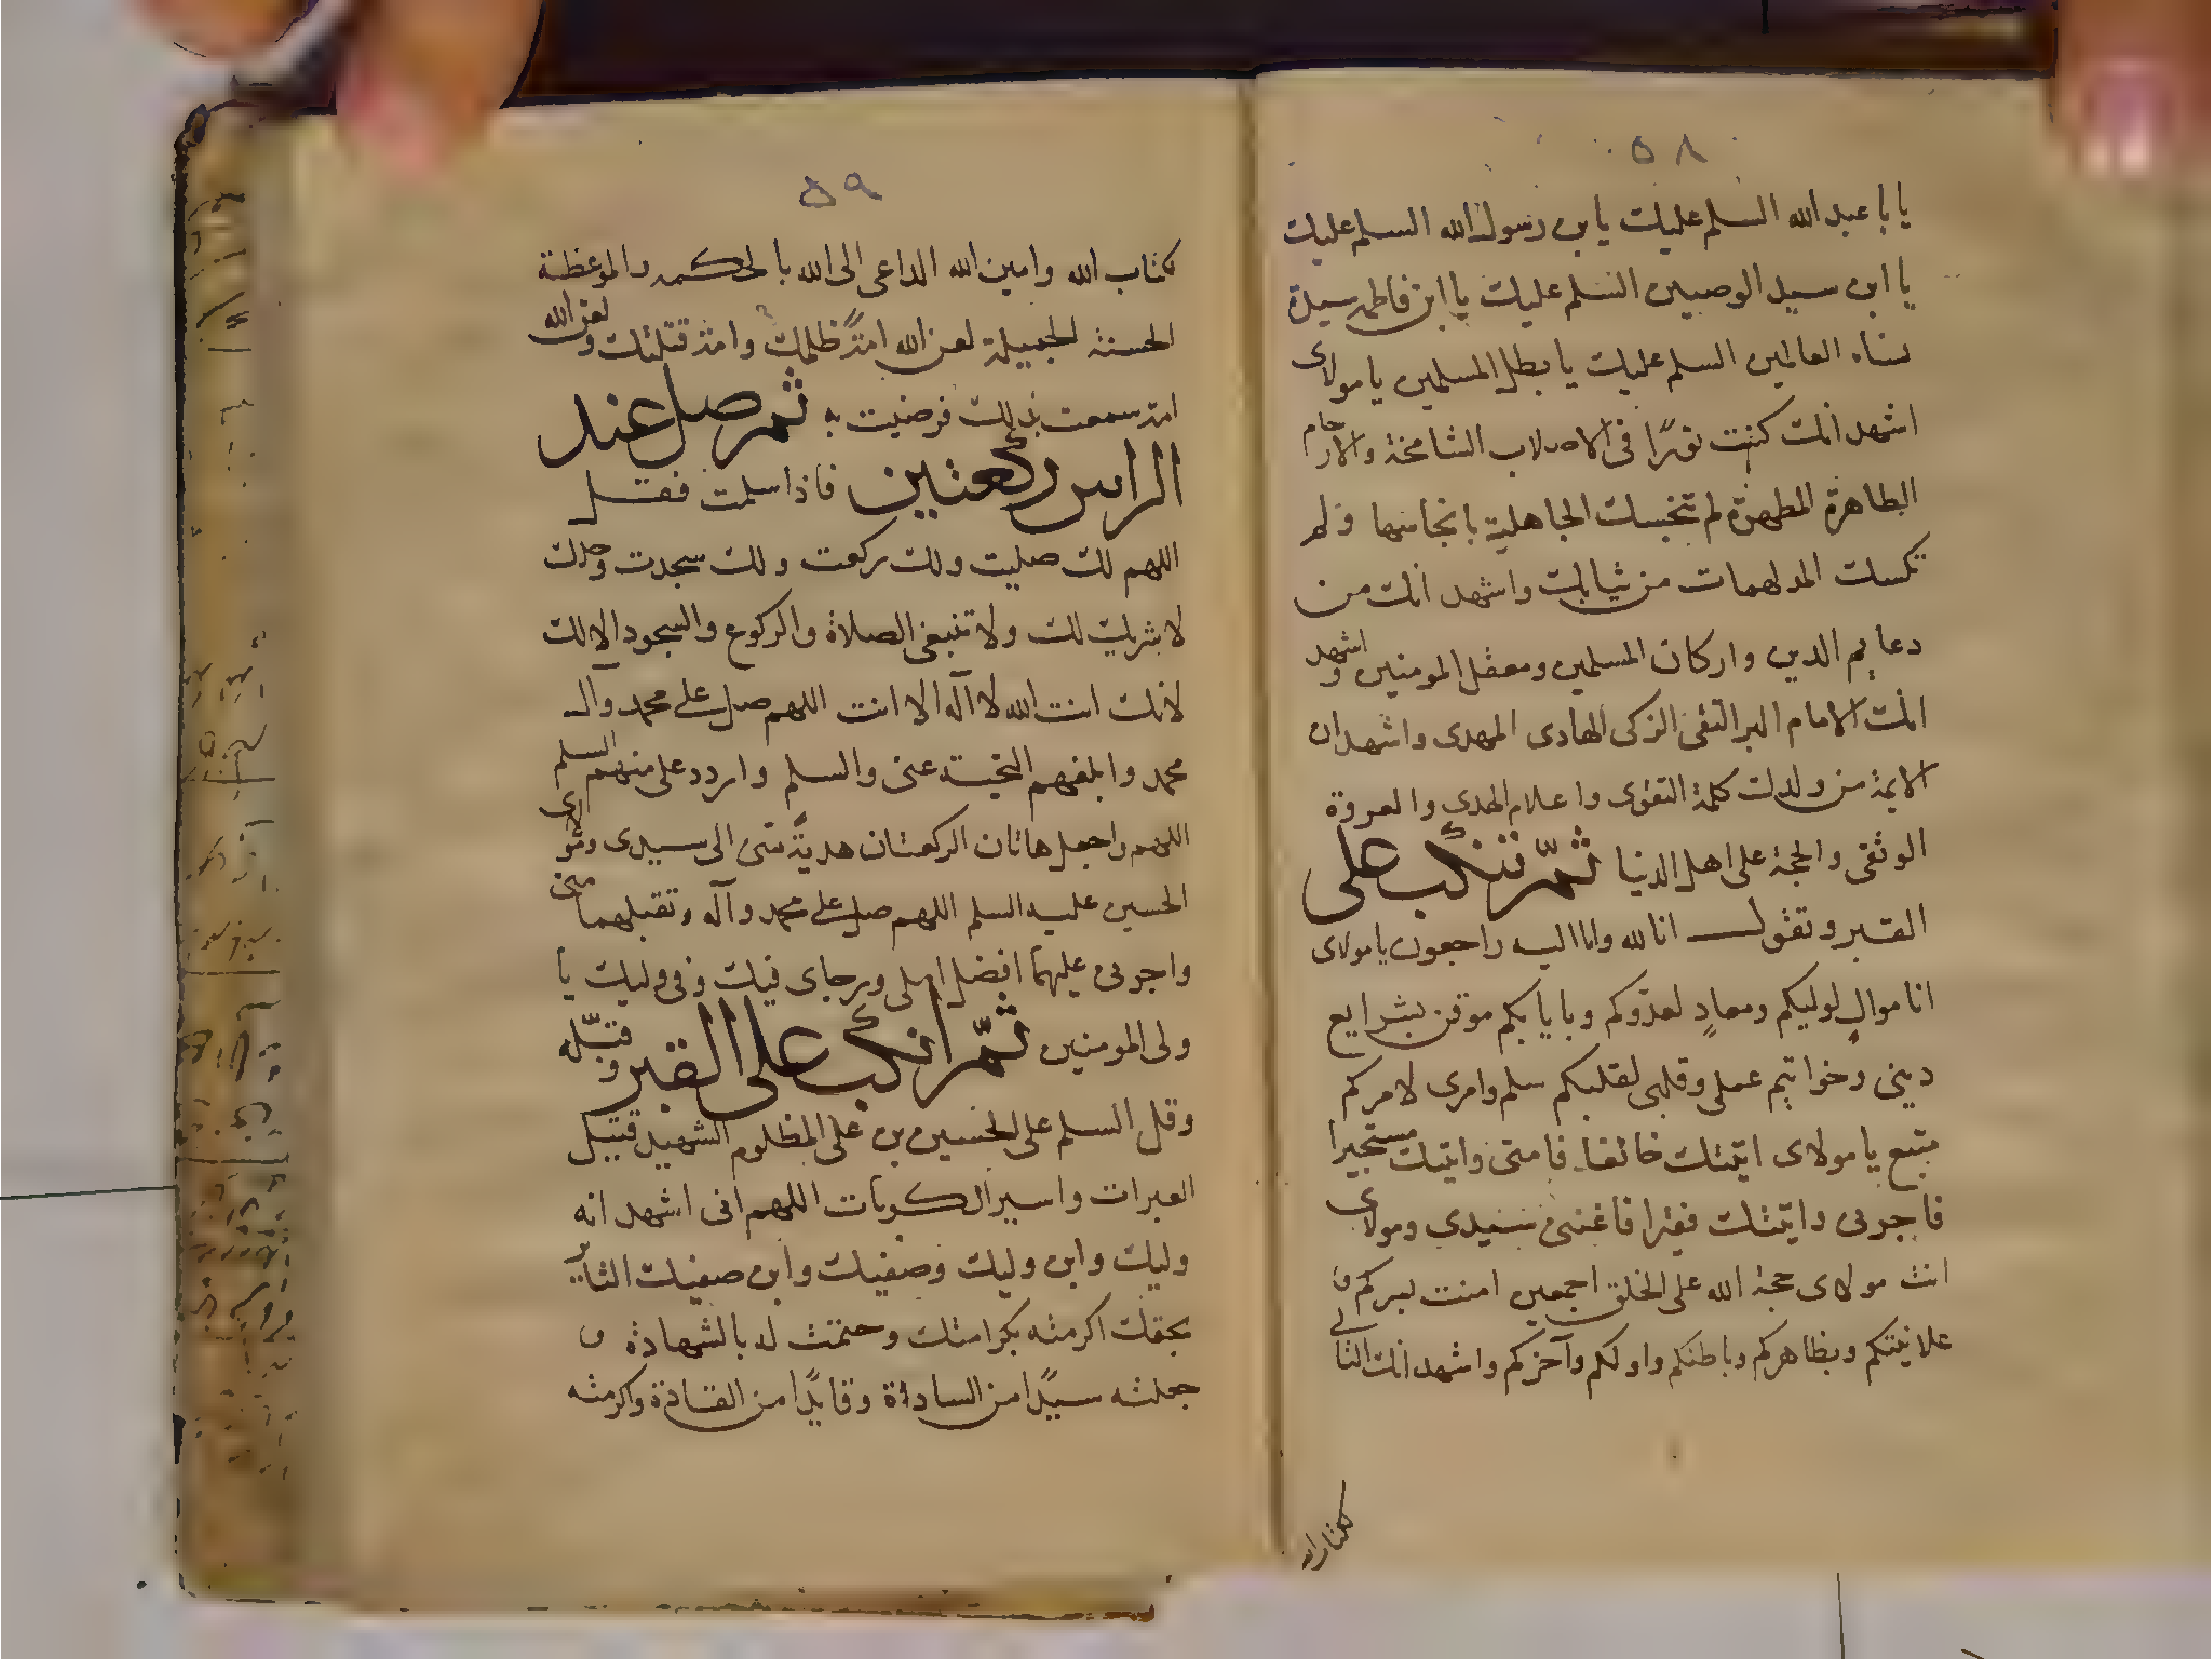 ٥٨
يا با عبد الله السلم عليك يا بن رسول الله السلم عليك
يا ابن سيد الوصيين السلم عليك يا ابن فاطمه سيدة
نساء العالمين السلم عليك يا بطل المسلمين يا مولاى
اشهد انك كنت نورًا فى الاصلاب الشامخة والارحام
الطاهرة المطهرة لم تنجسك الجاهلية بانجاسها ولم
تكسك المدلهمات من ثيابك واشهد انك من
دعايم الدين واركان المسلمين ومعقل المومنين واشهد
انك الامام البر التقى الزكى الهادى المهدى واشهد ان
الايمة من ولدك كلمة التقوى واعلام الهدى والعروة
الوثقى والحجة على اهل الدنيا ثمّ تنكب على
القبر وتقول انا لله وانا اليه راجعون يا مولاى
انا موالٍ لوليكم ومعادٍ لعدوكم وبايابكم موقن بشرايع
دينى وخواتيم عملى وقلبى لقلبكم سلم وامرى لامركم
متبع يا مولاى اتيتك خائفا فامنى واتيتك مستجيرا
فاجرنى واتيتك فقيرا فاغننى سيدى ومولاى
انت مولاى حجة الله على الخلق اجمعين امنت بسركم و
علانيتكم وبظاهركم وباطنكم واولكم وآخركم واشهد انك التالى
كتاب الله
٥٩
كتاب الله وامين الله الداعى الى الله بالحكمه والموعظة
الحسنة الجميلة لعن الله امةً ظلمتك وامة قتلتك ولعن الله
امة سمعت بذلك فرضيت به ثم صل عند
الراس ركعتين فاذا سلمت فقل
اللهم لك صليت ولك ركعت ولك سجدت وحدك
لا شريك لك ولا تنبغى الصلاة والركوع والسجود الا لك
لانك انت الله لا اله الا انت اللهم صل على محمد وآل
محمد وابلغهم التحية عنى والسلم واردد على منهم السلم
اللهم واجعل هاتان الركعتان هديةً منى الى سيدى ومولاى
الحسين عليه السلم اللهم صل على محمد وآله وتقبلهما منى
واجرنى عليهما افضل املى ورجاى فيك وفى وليك يا
ولى المومنين ثمّ انكب على القبر وقبّله
وقل السلم على الحسين بن على المظلوم الشهيد قتيل
العبرات واسير الكربات اللهم انى اشهد انه
وليك وابن وليك وصفيك وابن صفيك الثاير
بحقك اكرمته بكرامتك وختمت له بالشهادة و
جعلته سيدًا من الساداة وقايدًا من القادة واكرمته